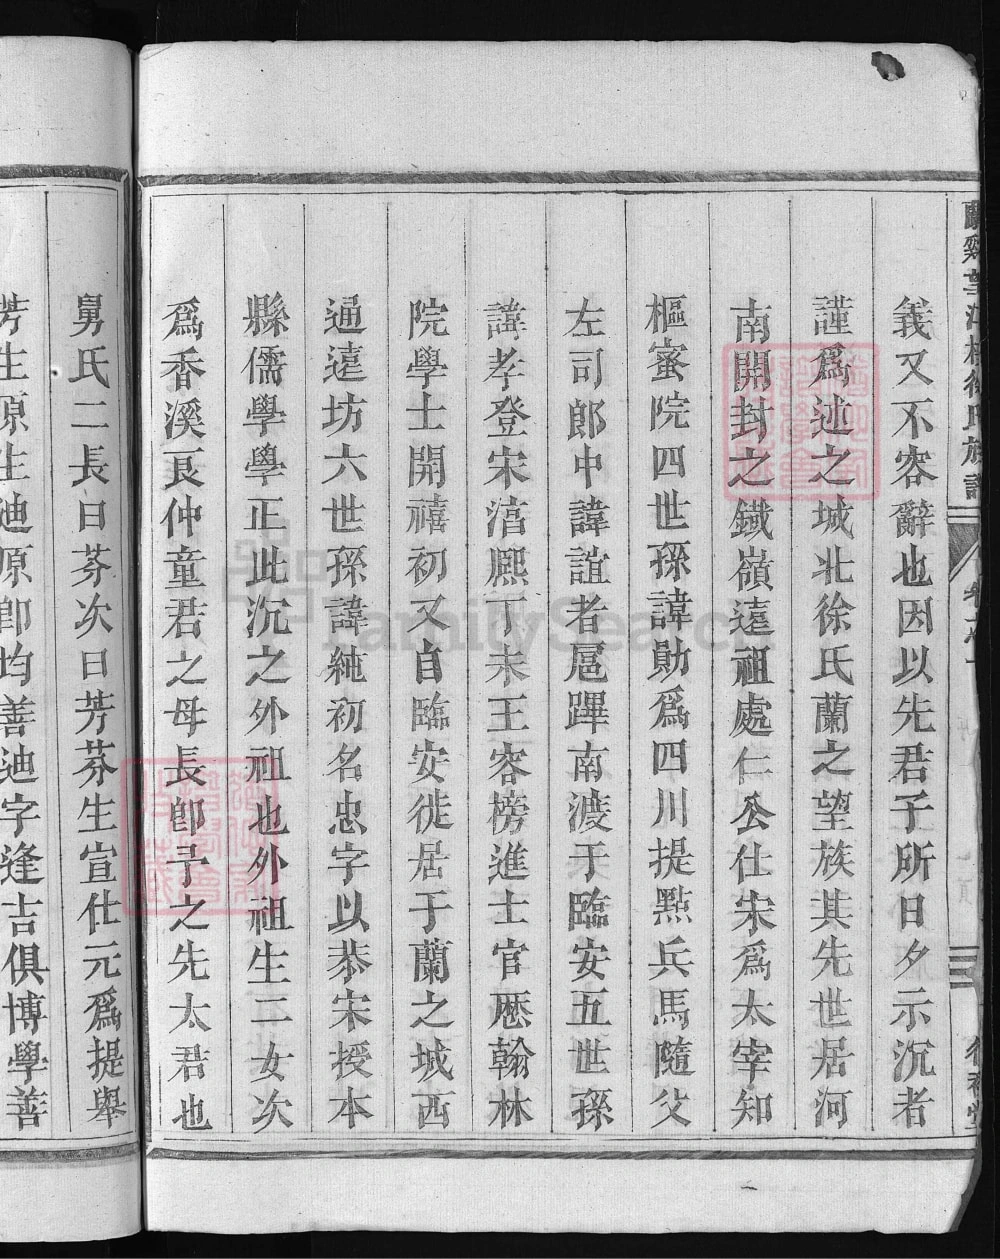 蘭谿望江楼徐氏族譜
義又不容辭也因以先君子所日夕示沉者
謹爲述之城北徐氏蘭之望族其先世居河
南開封之鐵嶺遠祖處仁公仕宋爲太宰知
樞蜜院四世孫諱勛爲四川提點兵馬隨父
左司郎中諱誼者扈蹕南渡于臨安五世孫
諱孝登宋湻熈丁未王容榜進士官厯翰林
院學士開禧初又自臨安徙居于蘭之城西
通遠坊六世孫諱純初名忠字以恭宋授本
縣儒學學正此沉之外祖也外祖生二女次
爲香溪㫐仲童君之母長卽予之先太君也
舅氏二長曰芬次曰芳芬生宣仕元爲提舉
芳生原生迪原卽均善迪字逢吉俱博學善
FamilySearch